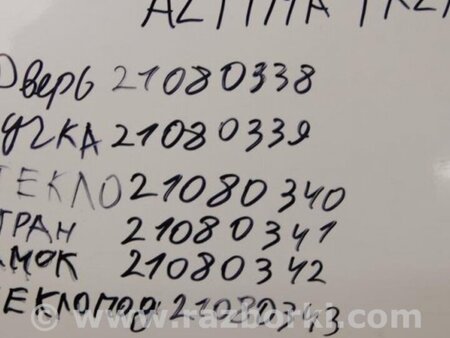 ALTIMA
Дверь 21080338
УЧКА 21080339
ТЕКЛО 21080340
ТРАН 21080341
АМОК 21080342
ЕКЛОПОД 21080343
www.razborki.com